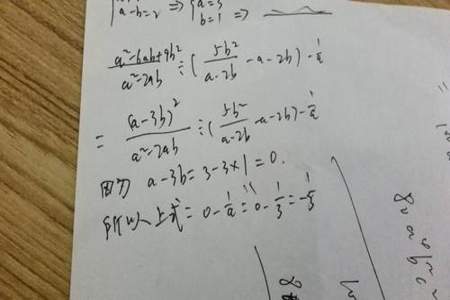 a-b=2 => { a=3 b=1 =>
(a²-6ab+9b²)/(a²-2ab) ÷ (5b²/(a-2b) - a-2b) - 1/a
= (a-3b)²/(a²-2ab) ÷ (5b²/(a-2b) - a-2b) - 1/a
因为 a-3b=3-3×1=0.
所以上式=0-1/a=0-1/3=-1/3